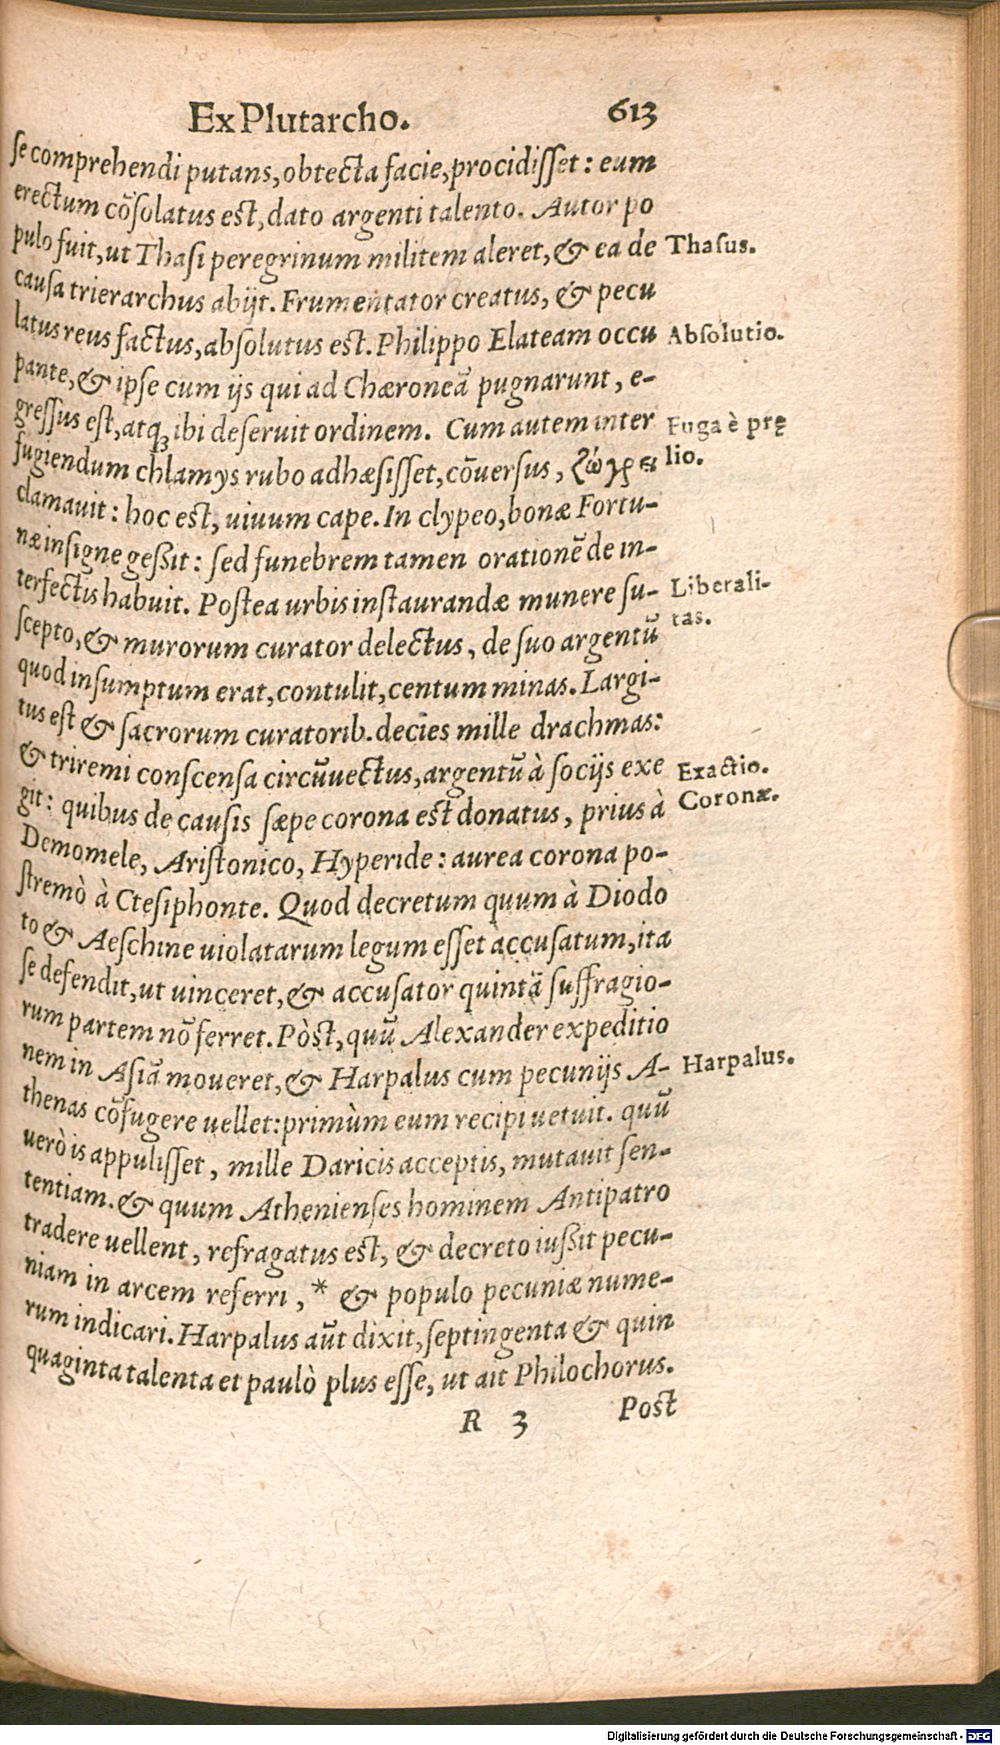 Ex Plutarcho. 613
se comprehendi putans, obtecta facie, procidisset: eum
erectum cōsolatus est, dato argenti talento. Autor po
pulo fuit, ut Thasi peregrinum militem aleret, & ea de
Thasus.
causa trierarchus abijt. Frumentator creatus, & pecu
latus reus factus, absolutus est. Philippo Elateam occu
Absolutio.
pante, & ipse cum ijs qui ad Chæroneā pugnarunt, e-
gressus est, atq; ibi deseruit ordinem. Cum autem inter
Fuga è prę
fugiendum chlamys rubo adhæsisset, cōuersus,
lio.
clamauit: hoc est, uiuum cape. In clypeo, bonæ Fortu-
næ insigne geßit: sed funebrem tamen orationē de in-
terfectis habuit. Postea urbis instaurandæ munere su-
Liberali-
tas.
scepto, & murorum curator delectus, de suo argentū
quod insumptum erat, contulit, centum minas. Largi-
tus est & sacrorum curatorib. decies mille drachmas:
& triremi conscensa circūuectus, argentū à socijs exe
Exactio.
git: quibus de causis sæpe corona est donatus, prius à
Coronæ.
Demomele, Aristonico, Hyperide: aurea corona po-
stremò à Ctesiphonte. Quod decretum quum à Diodo
to & Aeschine uiolatarum legum esset accusatum, ita
se defendit, ut uinceret, & accusator quintā suffragio-
rum partem nō ferret. Pòst, quū Alexander expeditio
nem in Asiā moueret, & Harpalus cum pecunijs A-
Harpalus.
thenas cōfugere uellet: primùm eum recipi uetuit. quū
uerò is appulisset, mille Daricis acceptis, mutauit sen-
tentiam. & quum Athenienses hominem Antipatro
tradere uellent, refragatus est, & decreto iußit pecu-
niam in arcem referri, * & populo pecuniæ nume-
rum indicari. Harpalus aūt dixit, septingenta & quin
quaginta talenta et paulò plus esse, ut ait Philochorus.
R 3 Post
Digitalisierung gefördert durch die Deutsche Forschungsgemeinschaft - DFG